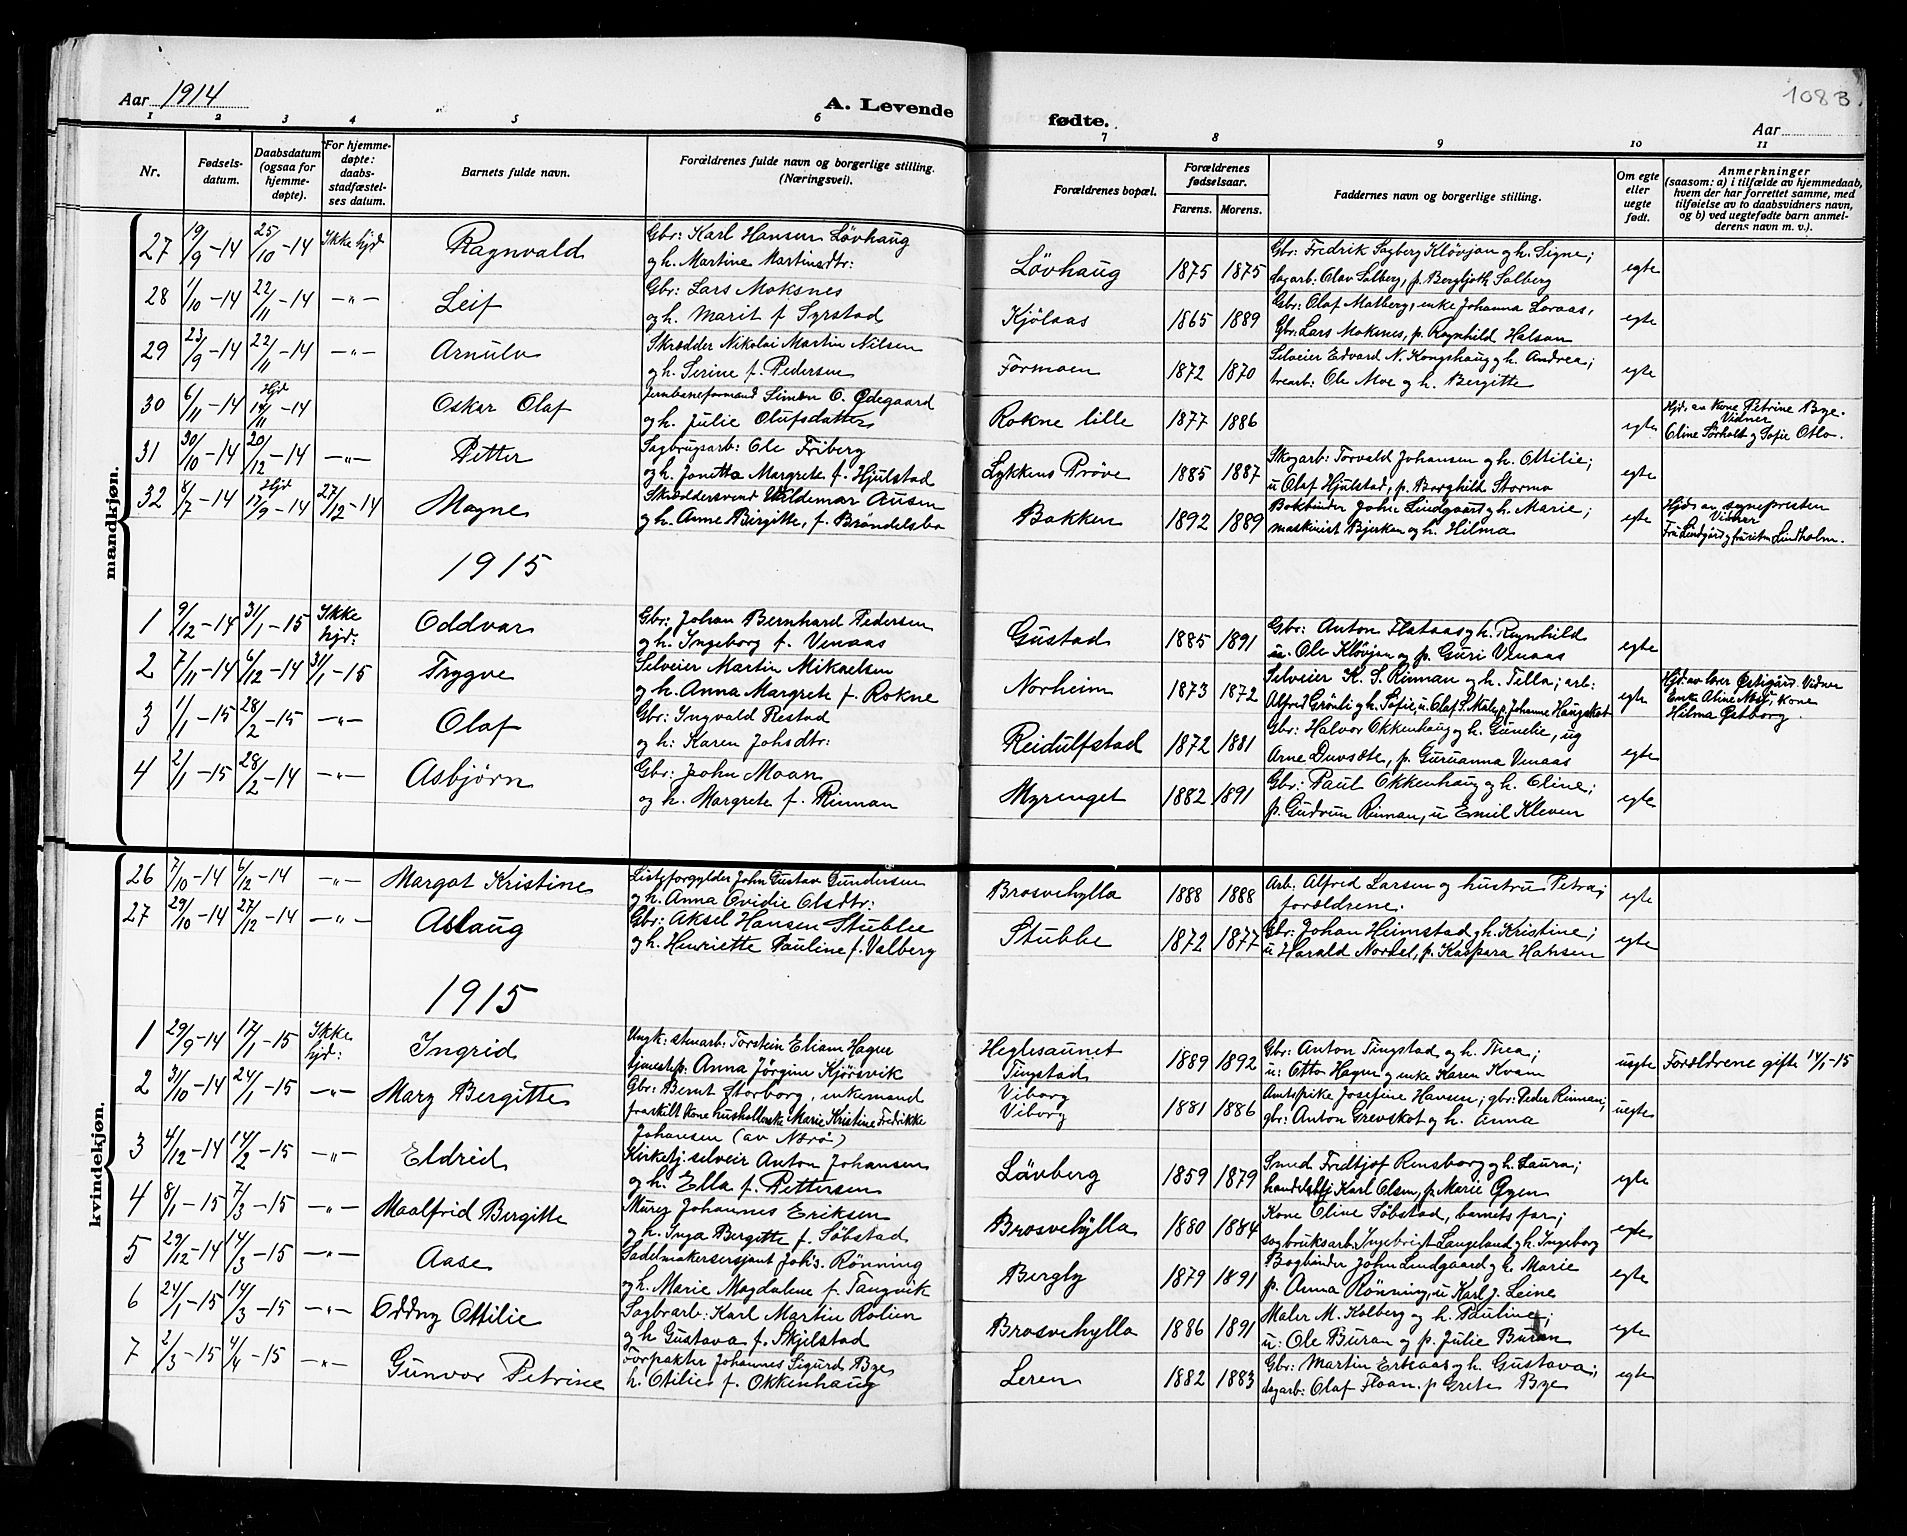 Aar 1914
A. Levende fødte.
108 B.
Aar
1 2 3 4 5 6 7 8 9 10 11
Nr.
Fødsels-datum.
Daabsdatum (ogsaa for hjemme-døpte).
For hjemme-døpte: daabs-stadfæstel-ses datum.
Barnets fulde navn.
Forældrenes fulde navn og borgerlige stilling. (Næringsvei).
Forældrenes bopæl.
Forældrenes fødselsaar.
Farens. Morens.
Faddernes navn og borgerlige stilling.
Om egte eller uegte født.
Anmerkninger (saasom: a) i tilfælde av hjemmedaab, hvem der har forrettet samme, med tilføielse av to daabsvidners navn, og b) ved uegtefødte barn anmelderens navn m. v.).
mandkjøn.
27 19/9-14 25/10-14 Ikke hjd Ragnvald Gbr: Karl Hansen Løvhaug Løvhaug 1875 1875 Gbr: Fredrik Sagberg Kløvjan g h. Signe; egte
og h. Martine Martinsdtr: dagarb: Olav Solberg, p. Bergljoth Solberg
28 1/10-14 22/11-14 -"- Leif Gbr: Lars Moksnes Kjölaas 1865 1889 Gbr: Olaf Matberg, enke Johanna Loraas, egte
og h. Marit f. Syrstad Gbr: Lars Moksnes, p. Ragnhild Halsan
29 23/9-14 22/11-14 -"- Arnulv Skrædder Nikolai Martin Nilsen Formoen 1872 1870 Selveier Edvard N. Kongshaug g h. Andrea; egte
og h. Serine f. Pedersen trearb: Ole Moe og h. Bergitte
30 6/11-14 Hjd 14/11-14 Oskar Olaf Jernbaneformand Simon O. Ødegaard Rokne lille 1877 1886 egte Hjd. av Kone Petrine Bye. Vidner
og h. Julie Olufsdatter Oline Sörholt og Sofie Otlo.
31 30/10-14 20/12-14 -"- Petter Sagbrugsarb: Ole Friberg Lykkens Prøve 1885 1887 Skogarb: Torvald Johansen og h. Ottilie; egte
og h. Jonetta Margrete f. Hjulstad u Olaf Hjulstad, p. Borghild Stormo
32 8/7-14 Hjd 17/9-14 27/12-14 Magne Skræddersvend Valdemar Ausen Bakken 1892 1889 Bokbinder John Lindgaard g h. Marie; egte Hjd. av sognepresten Vidner
og h. Anne Birgitte, f. Brøndelsbo maskinist Bjerkan og h. Hilma Fru Lindgård g Lindholm.
1915
1 9/12-14 31/1-15 Ikke hjd: Oddvar Gbr: Johan Bernhard Pedersen Gustad 1885 1891 Gbr: Anton Flataas g h. Ragnhild egte
og h. Ingeborg f. Venaas u. Ole Kløvjan og p. Guri Venaas
2 7/11-14 6/12-14 31/1-15 Trygve Selveier Martin Mikaelsen Norheim 1873 1872 Selveier K. S. Rinnan og h. Tella; arb: egte Hjd: av Iver Østigård. Vidner
og h. Anna Margrete f. Rokne Alfred Grönli g h. Sofie, u. Olaf S. Mule, p. Johanne Haugskot Enke Oline Moss, Kone
3 1/1-15 28/2-15 -"- Olaf Gbr: Ingvald Restad Reidulfstad 1872 1881 Gbr: Halvor Okkenhaug g h. Gunelie, ug egte Hilma Østborg.
og h: Karen Johsdtr: Arne Duvsæte, p. Guruanna Venaas
4 2/1-15 28/2-14 -"- Asbjørn Gbr: John Moan Myrenget 1882 1891 Gbr: Paul Okkenhaug og h. Oline; egte
og h. Margrete f. Rinnan p. Gudrun Rinnan, u Emil Kleven
kvindekjøn.
26 7/10-14 6/12-14 -"- Margot Kristine Listeforgylder John Gustav Gundersen Brosvehylla 1888 1888 Arb: Alfred Larsen og hustru Petra; egte
og h. Anna Ovidie Olsdtr: forældrene.
27 29/10-14 27/12-14 -"- Aslaug Gbr: Aksel Hansen Stubbe Stubbe 1872 1877 Gbr: Johan Heimstad g h. Kristine; egte
og h. Henriette Pauline f. Valberg u Harald Nordel, p. Kaspara Hansen
1915
1 29/9-14 17/1-15 Ikke hjd: Ingrid Ungk: stenarb: Torstein Eliam Hagen Heglesaunet 1889 1892 Gbr: Anton Tingstad og h. Thea; uegte Forældrene gifte 14/1-15
tjenestep: Anna Jörgine Kjörsvik Tingstad u: Otto Hagen og enke Karen Kvam
2 31/10-14 24/1-15 -"- Mary Bergitte Gbr: Bernt Storborg, enkemand Viborg 1881 1886 Amtsfrike Josefine Hansen; gbr: Peder Rinnan; uegte
fraskilt Kone husholderske Marie Kristine Fredrikke Viborg gbr: Anton Grevskot og h. Anna
Johansen (av Nærö)
3 4/12-14 14/2-15 -"- Eldrid Kirketj: selveir Anton Johansen Lövberg 1859 1879 Smed Fredtjof Rensborg og h. Laura; egte
og h. Ella f. Pettersen handelsbtj Karl Olsen, p. Marie Øyen
4 8/1-15 7/3-15 -"- Maalfrid Bergitte Murer Johannes Eriksen Brosvehylla 1880 1884 Kone Oline Söbstad, barnets far; egte
og h. Inga Bergitte f. Söbstad sagbruksarb. Ingebrigt Langeland g h. Ingeborg
5 29/12-14 14/3-15 -"- Aase Sadelmakersersjant Johs. Rönning Bergly 1879 1891 Bogbinder John Lindgaard g h. Marie egte
og h. Marie Magdalene f. Tangvik p. Anna Rönning, u Karl J. Leine
6 24/1-15 14/3-15 -"- Oddny Ottilie Sagbrarb: Karl Martin Rolien Brosvehylla 1886 1891 Maler M. Kolberg og h. Pauline; egte
og h Gustava f. Skjelstad u: Ole Buran og p. Julie Buran
7 2/3-15 4/4-15 -"- Gunvor Petrine Forpakter Johannes Sigurd Bye Leren 1882 1883 Gbr: Martin Ertsaas g h. Gustava; egte
h. Otilie f. Okkenhaug dagarb: Olaf Floan. p Grete Bye